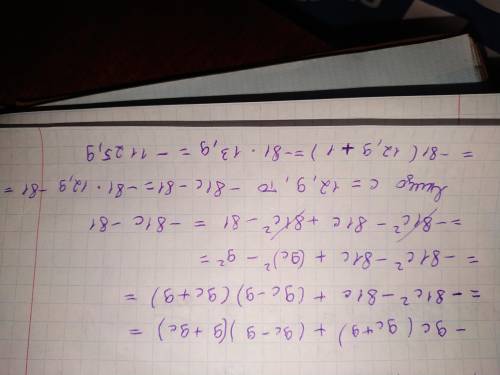 - 9c(9c+9) + (9c-9)(9+9c) =
= -81c² - 81c + (9c-9)(9c+9) =
= -81c² - 81c + (9c)² - 9² =
= -81c² - 81c + 81c² - 81 = -81c - 81
Якщо c = 12,9, то -81c - 81 = -81 · 12,9 - 81 =
= -81(12,9 + 1) = -81 · 13,9 = - 1125,9